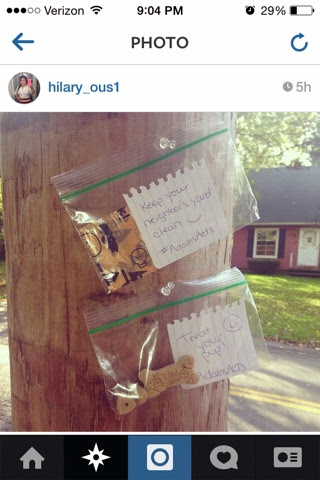 Verizon 9:04 PM 29%
PHOTO
hilary_ous1 5h
Keep your
neighbors yard
clean
#AdamActs
Treat
your
pup!
#AdamActs